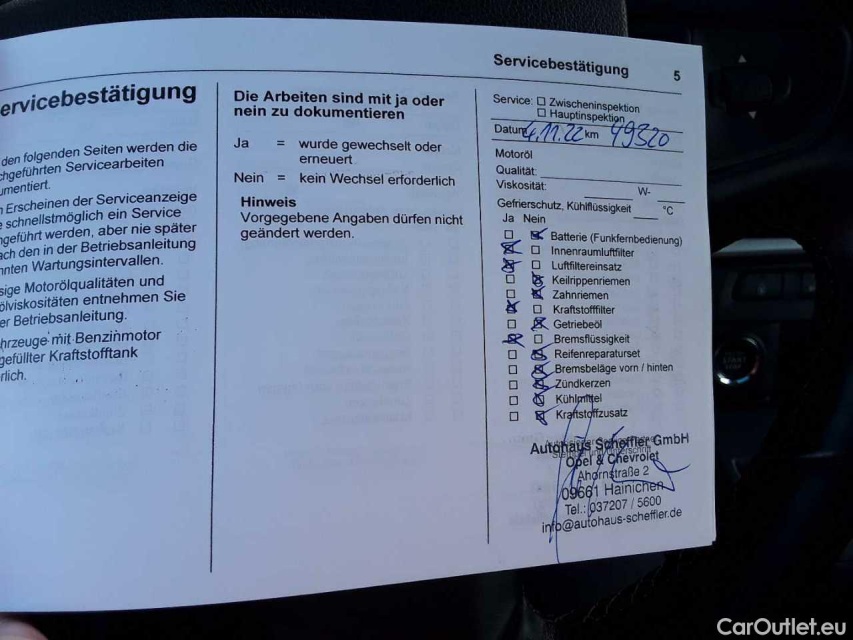 Servicebestätigung
5
ervicebestätigung
den folgenden Seiten werden die
chgeführten Servicearbeiten
umentiert.
Erscheinen der Serviceanzeige
schnellstmöglich ein Service
geführt werden, aber nie später
ach den in der Betriebsanleitung
nnten Wartungsintervallen.
sige Motorölqualitäten und
ölviskositäten entnehmen Sie
er Betriebsanleitung.
hrzeuge mit Benzinmotor
gefüllter Kraftstofftank
rlich.
Die Arbeiten sind mit ja oder
nein zu dokumentieren
Ja = wurde gewechselt oder
erneuert
Nein = kein Wechsel erforderlich
Hinweis
Vorgegebene Angaben dürfen nicht
geändert werden.
Service: Zwischeninspektion
Hauptinspektion
Datum 4.11.22 km 49320
Motoröl
Qualität:
Viskosität: W-
Gefrierschutz, Kühlflüssigkeit °C
Ja Nein
Batterie (Funkfernbedienung)
Innenraumluftfilter
Luftfiltereinsatz
Keilrippenriemen
Zahnriemen
Kraftstofffilter
Getriebeöl
Bremsflüssigkeit
Reifenreparaturset
Bremsbeläge vorn / hinten
Zündkerzen
Kühlmittel
Kraftstoffzusatz
Autohaus Scheffler GmbH
Opel & Chevrolet
Ahornstraße 2
09661 Hainichen
Tel.: 037207 / 5600
info@autohaus-scheffler.de
START
STOP
CarOutlet.eu